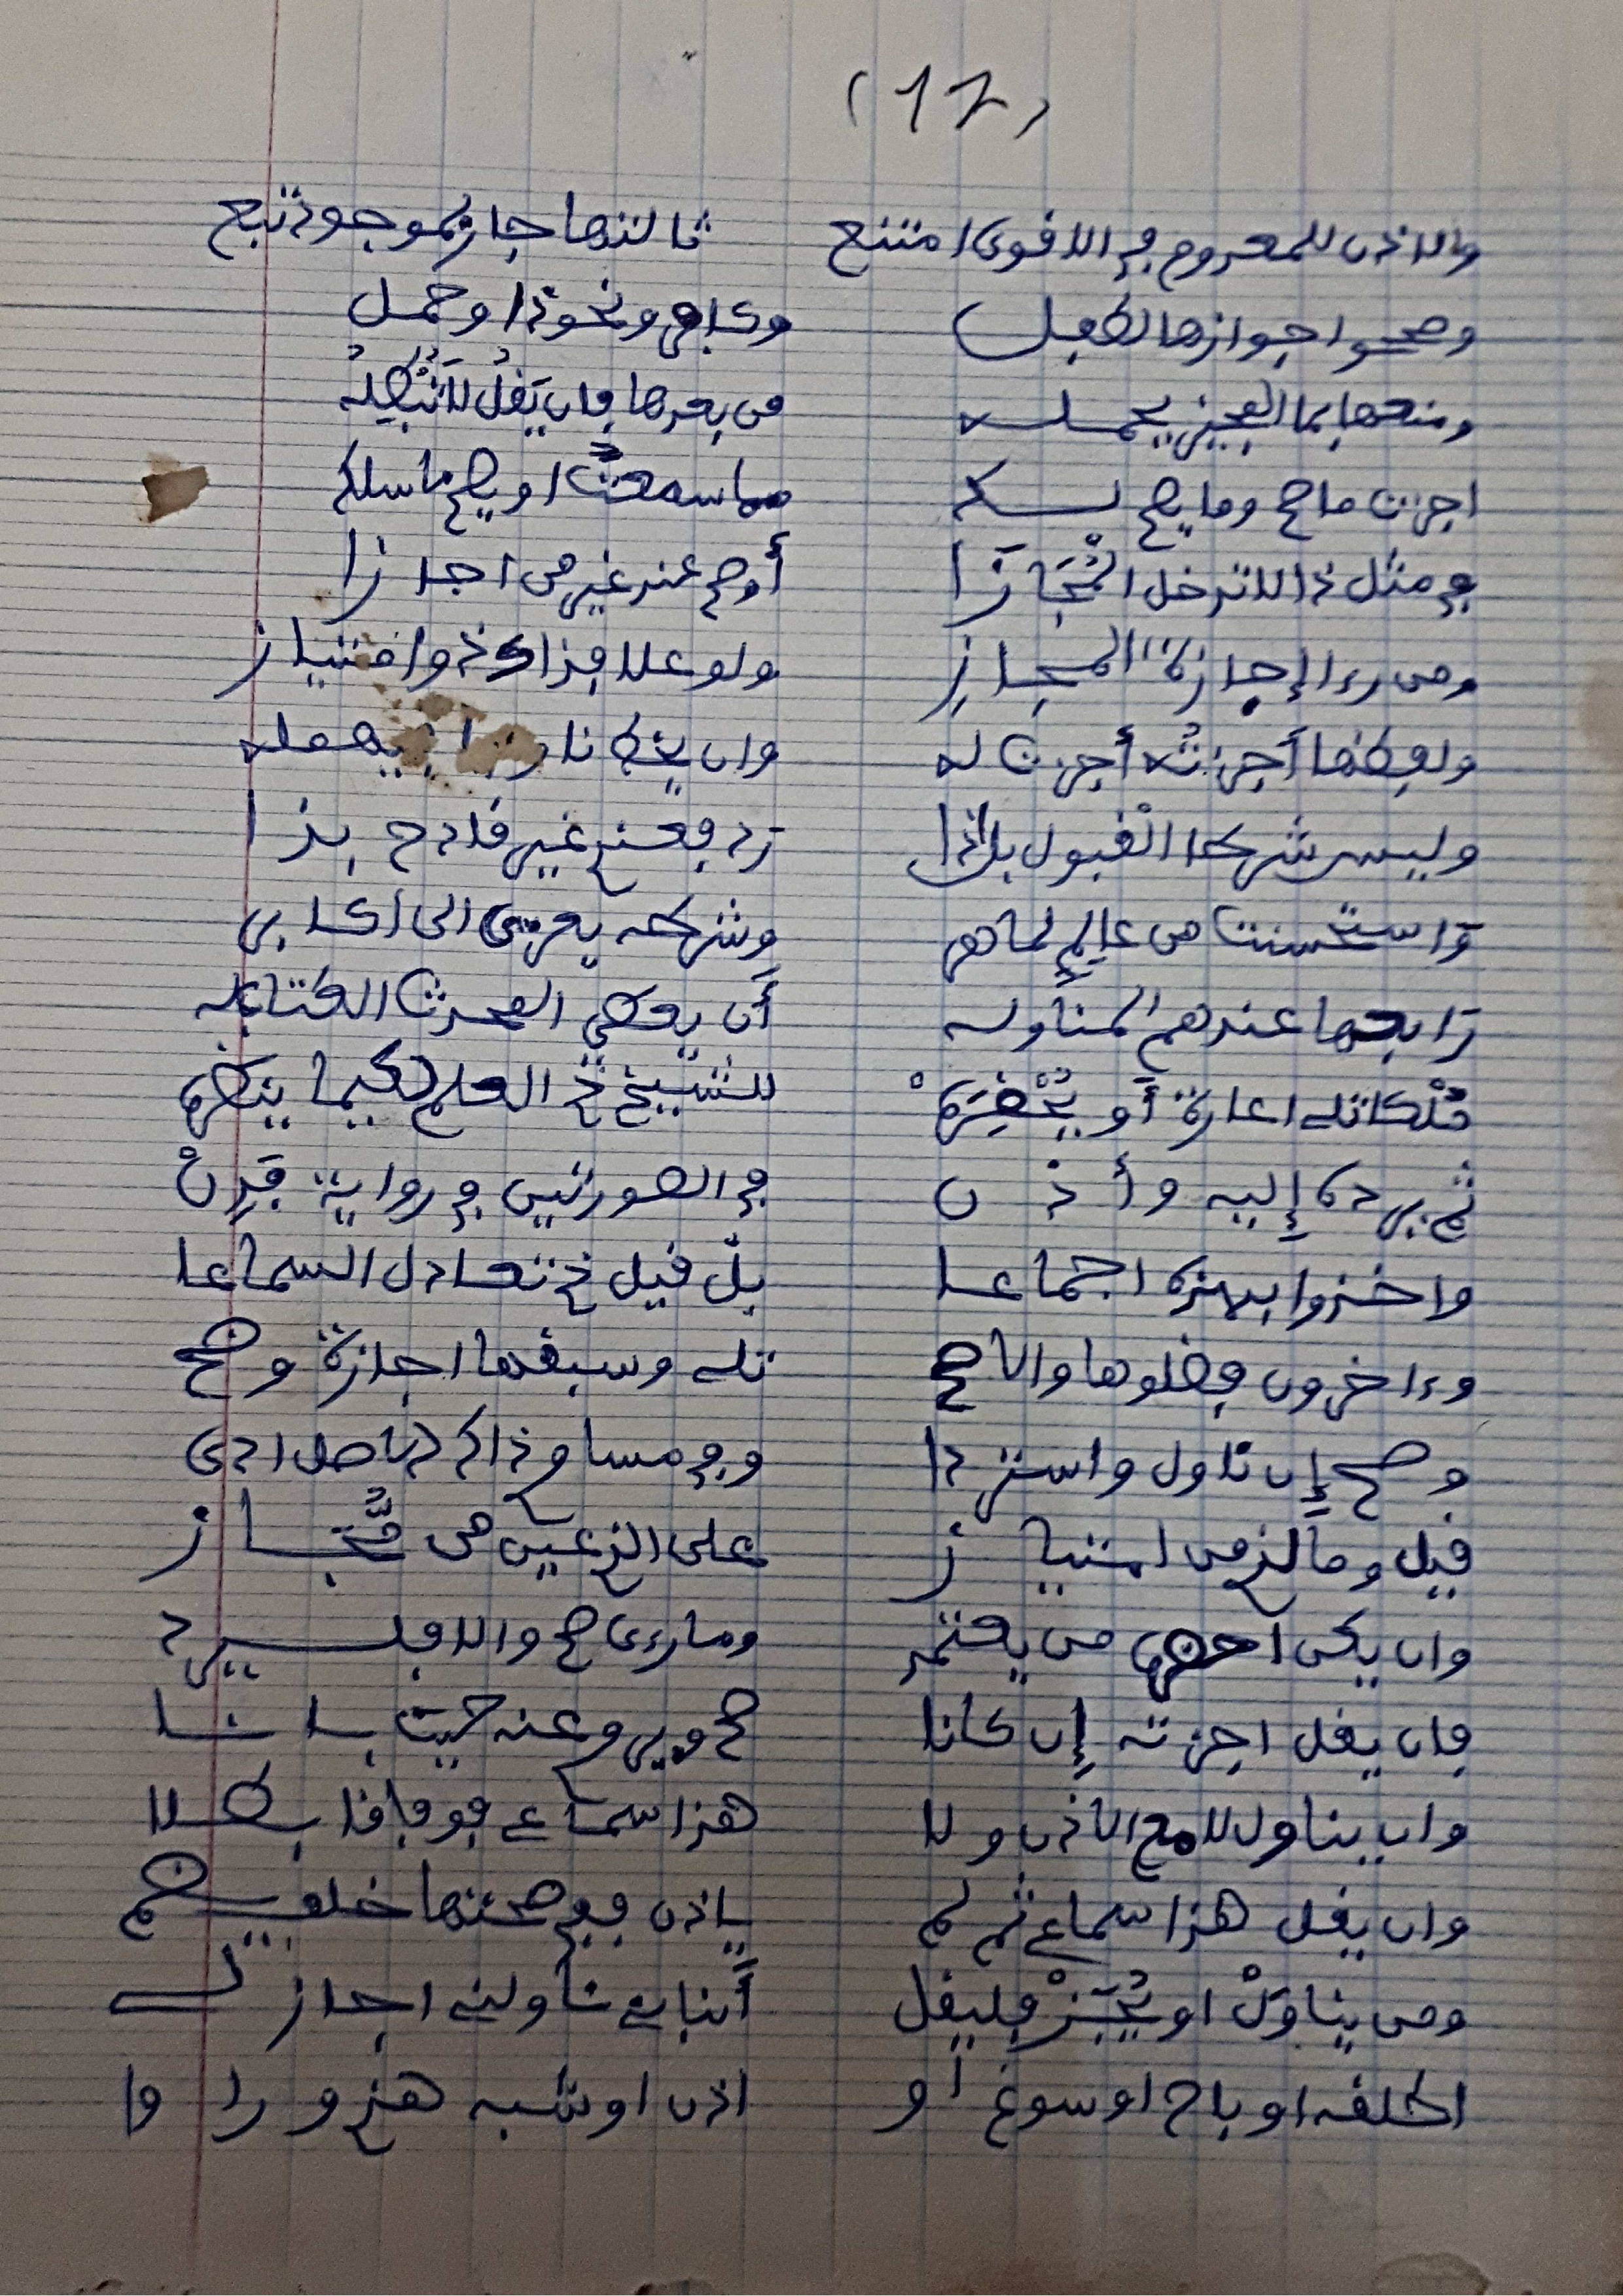 (17)
والاذن للمعدوم في الاقوى امتنع ثالثها جاز لموجود تبع
وصححوا جوازها لطفل وكافر ونحو ذا وحمل
ومنعها بما المجيز يحمله من بعدها فان يَقُل لَا نُبْطِلُهُ
اجزت ما صح وما يصح لك مما سمعتَ او يصح ما سلك
في مثل ذا لا تدخل الْمُجَازَا أو صح عند غير من اجازا
ومن رءا إجازة المجازِ ولو علا فذاك ذو امتياز
ولفظها أجزتُه أجزت له وان يخط يهمله
وليس شرطا الْقبول بل إذا رد فعندي غير قادح بذا
وَاستحسنت من عالِمٍ لماهر وشرطه يعزى الى اكابر
رَابعها عندهم المناوله أن يعطي المحدث الكتاب له
مُلْكا تلي اعارة أو يُحْضِرَهْ للشيخ ذي العلم لكيما ينظره
ثم يرده إليه وأذن في الصورتين في رواية فَدِنْ
واخذوا بهذه اجماعا بل قيل ذي تعادل السماعا
وءاخرون فضلوها والاصح تلي وسبقها اجازة وضح
وصح إن ناول واستردا وفي مساو ذاك الاصل ادى
قيل وما لذي من امتياز على الذي عين من مُجَاز
وان يكن احضره من يعتمد وما رءى صح والا فليرد
فان يقل اجزته إن كانا صح ويروي عنه حيث بانا
وان يناول لا مع الاذن ولا هذا سماعي فوفاقا بطلا
وان يقل هذا سماعي ثم لم ياذن ففي صحتها خلف يضم
ومن يناوَلْ او يُجَزْ فليقل أنبأني ناولني اجاز لي
اطلقه او باح او سوغ او اذن او شبه هذي ورووا